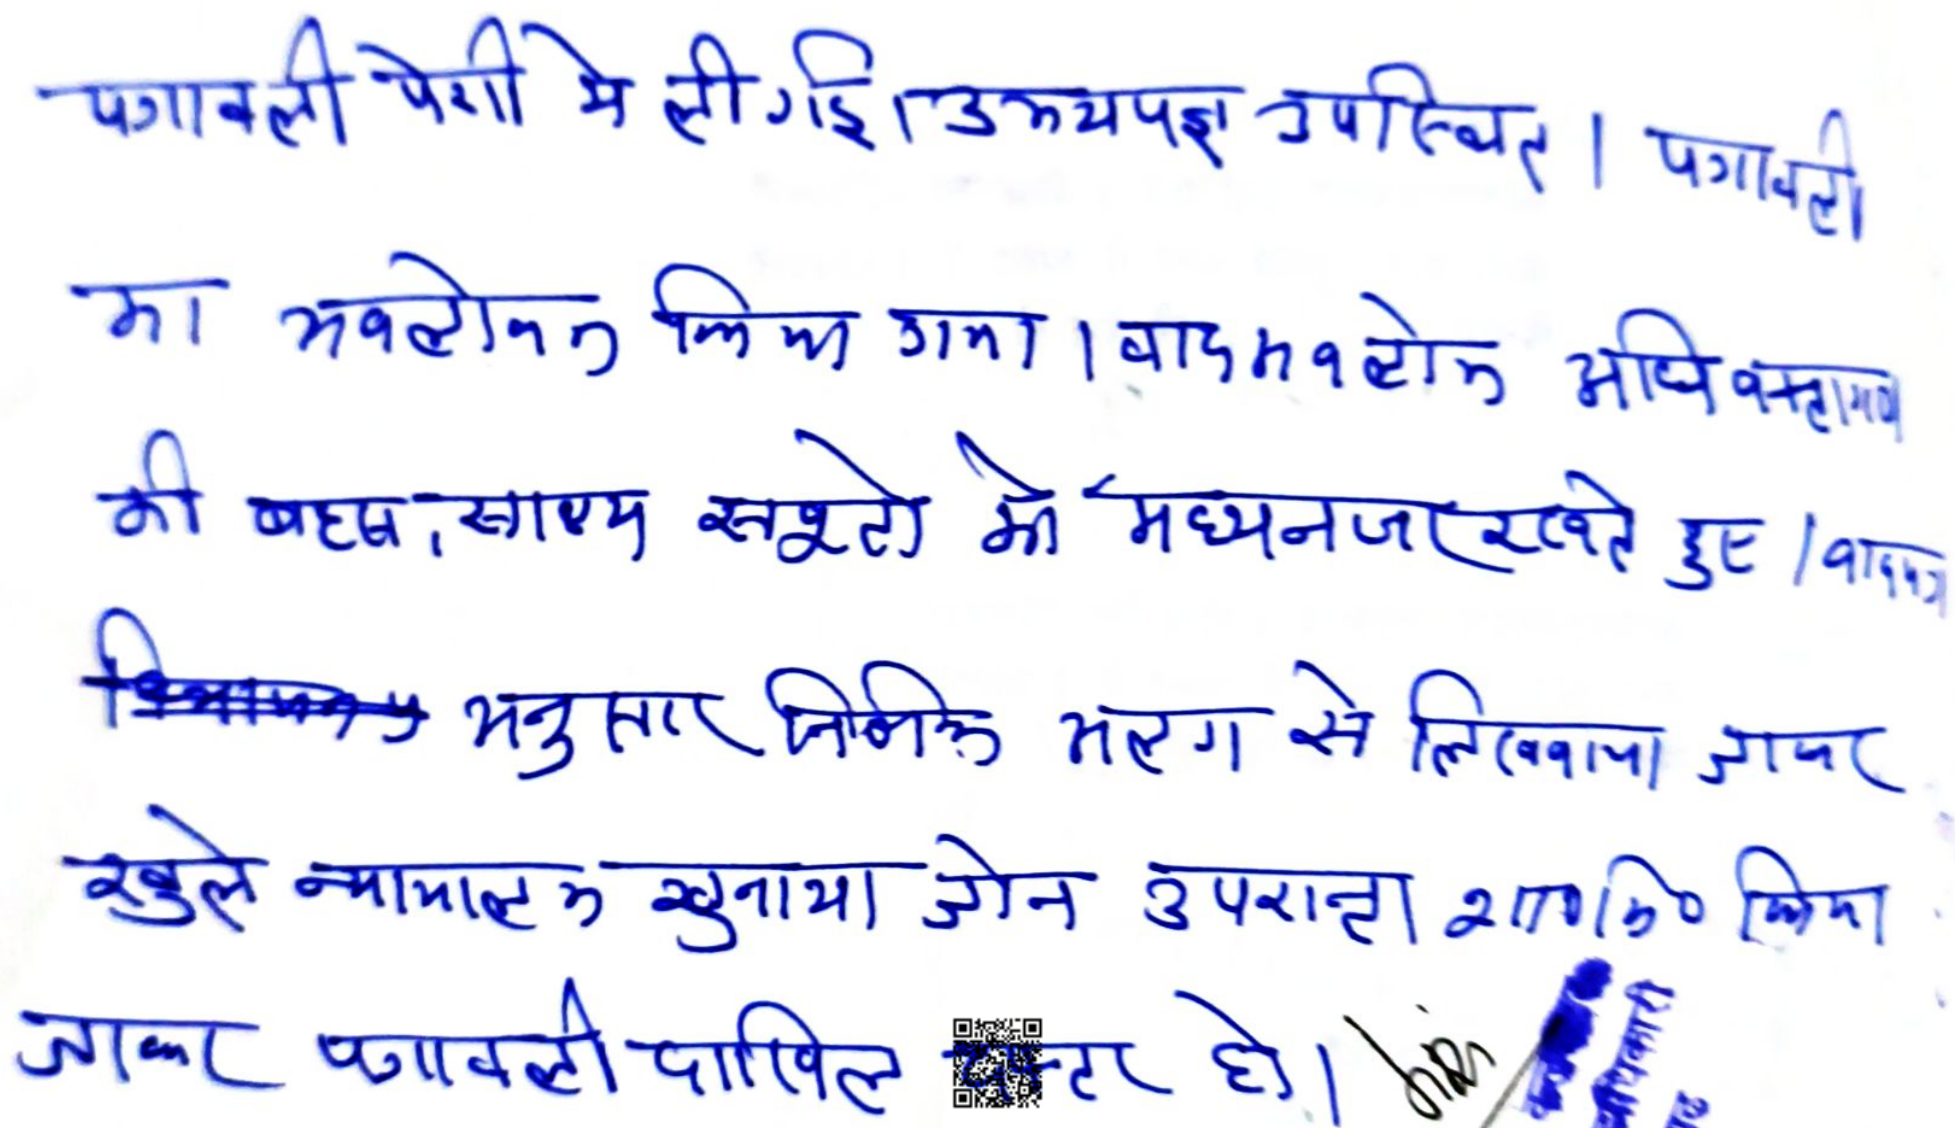 पत्रावली पेशी मे ली गई। उभयपक्ष उपस्थित। पत्रावली
का अवलोकन किया गया। वाद अवलोक अधिवक्तागण
की बहस, साक्ष्य सबूतो को मध्यनजर रखते हुए। वादपत्र
अनुसार निर्णय अलग से लिखवाया जाकर
खुले न्यायालय सुनाया जाने उपरान्त शामिल किया
जाकर पत्रावली दाखिल दफ्तर हो।